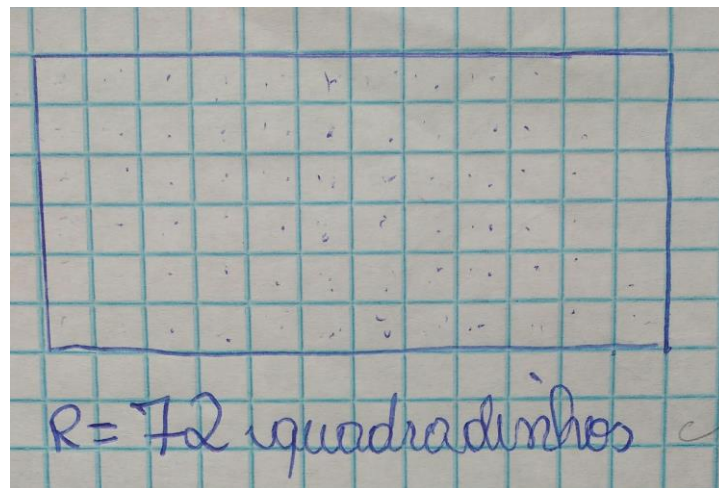 R = 72 quadradinhos